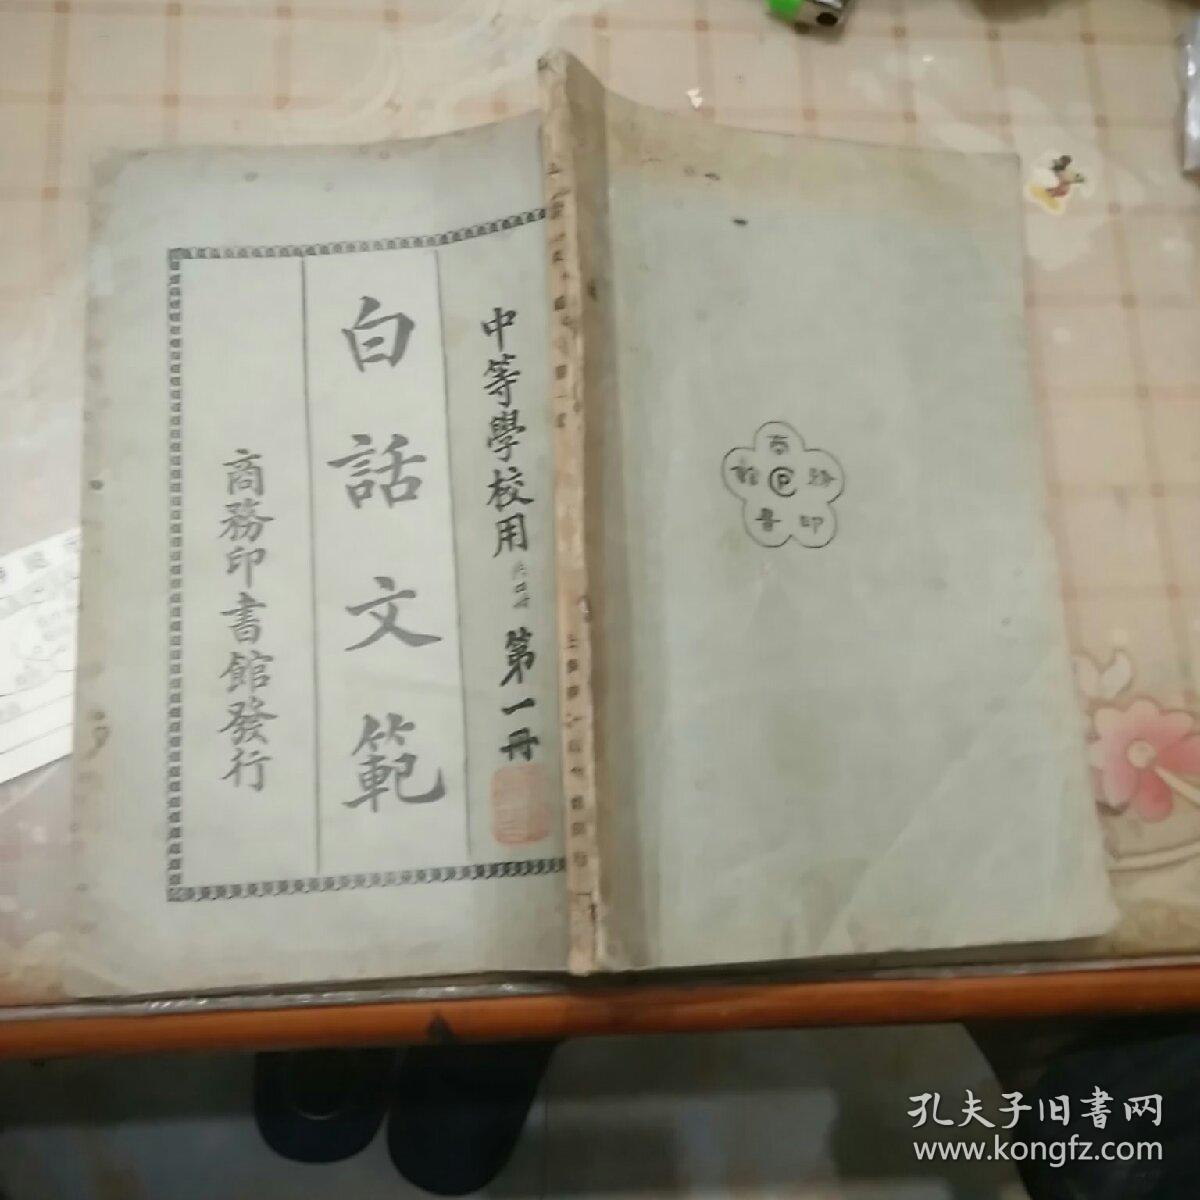 中等學校用
第一冊
白話文範
商務印書館發行
商務印書
P
孔夫子旧書网
www.kongfz.com